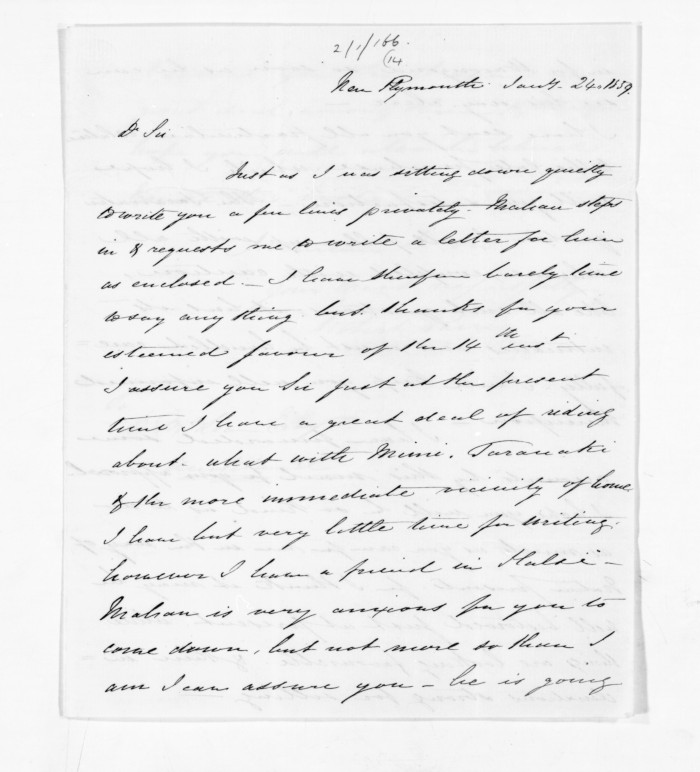 2/1/166.
(14
New Plymouth. Jany. 24. 1859
Dr Sir
Just as I was sitting down quietly
to write you a few lines privately. Mahau steps
in & requests me to write a letter for him
as enclosed – I have therefore barely time
to say anything but thanks for your
esteemed favour of the 14th inst
I assure you Sir just at the present
time I have a great deal of riding
about. what with Mimi, Taranaki
& the more immediate vicinity of home.
I have but very little time for writing.
however I have a friend in Halse –
Mahau is very anxious for you to
come down, but not more so than I
am I can assure you – he is going